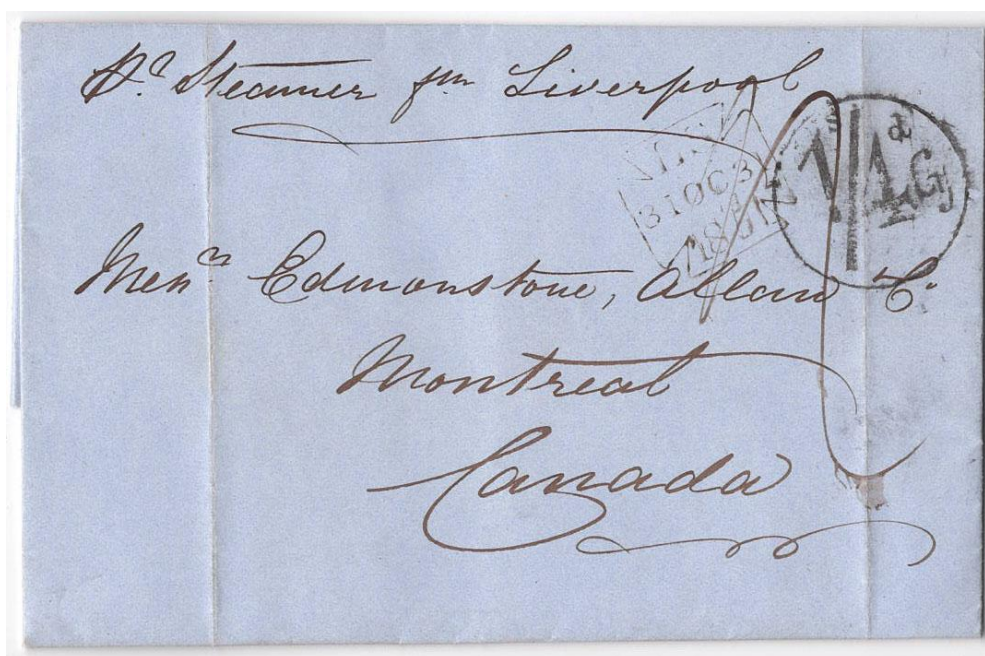 Pr. Steamer fm Liverpool
31 OC 31
18
s d
1/1½
Messrs. Edmonstone, Allan Co.
Montreal
Canada